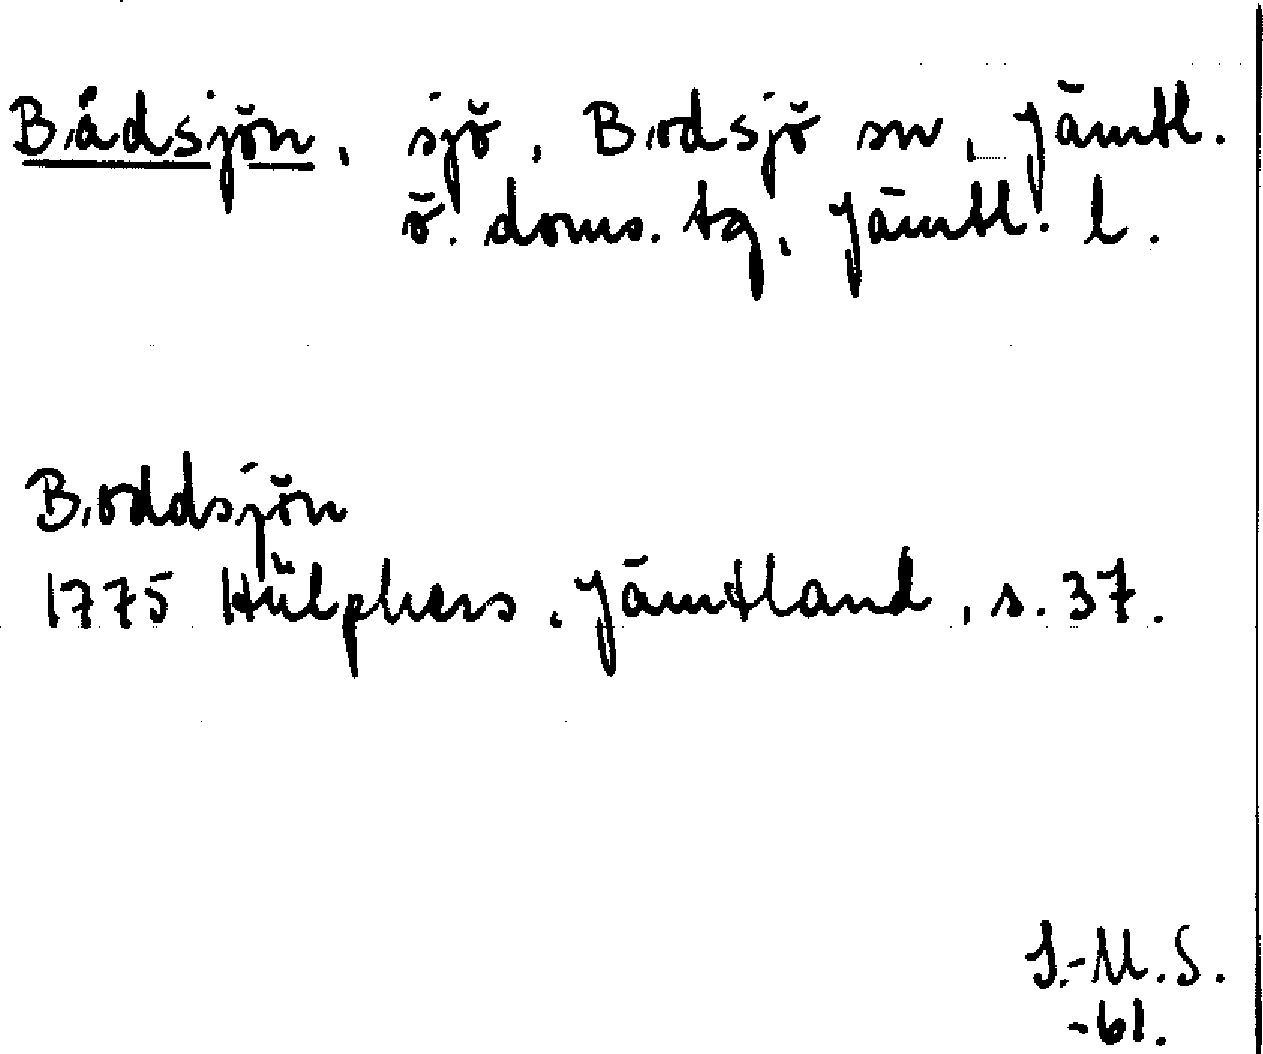 Bådsjön, sjö, Bodsjö sn, Jämtl.
ö. doms. tg, Jämtl. l.
Boddsjön
1775 Hülphers. Jämtland, s. 37.
I.-M.S.
-61.